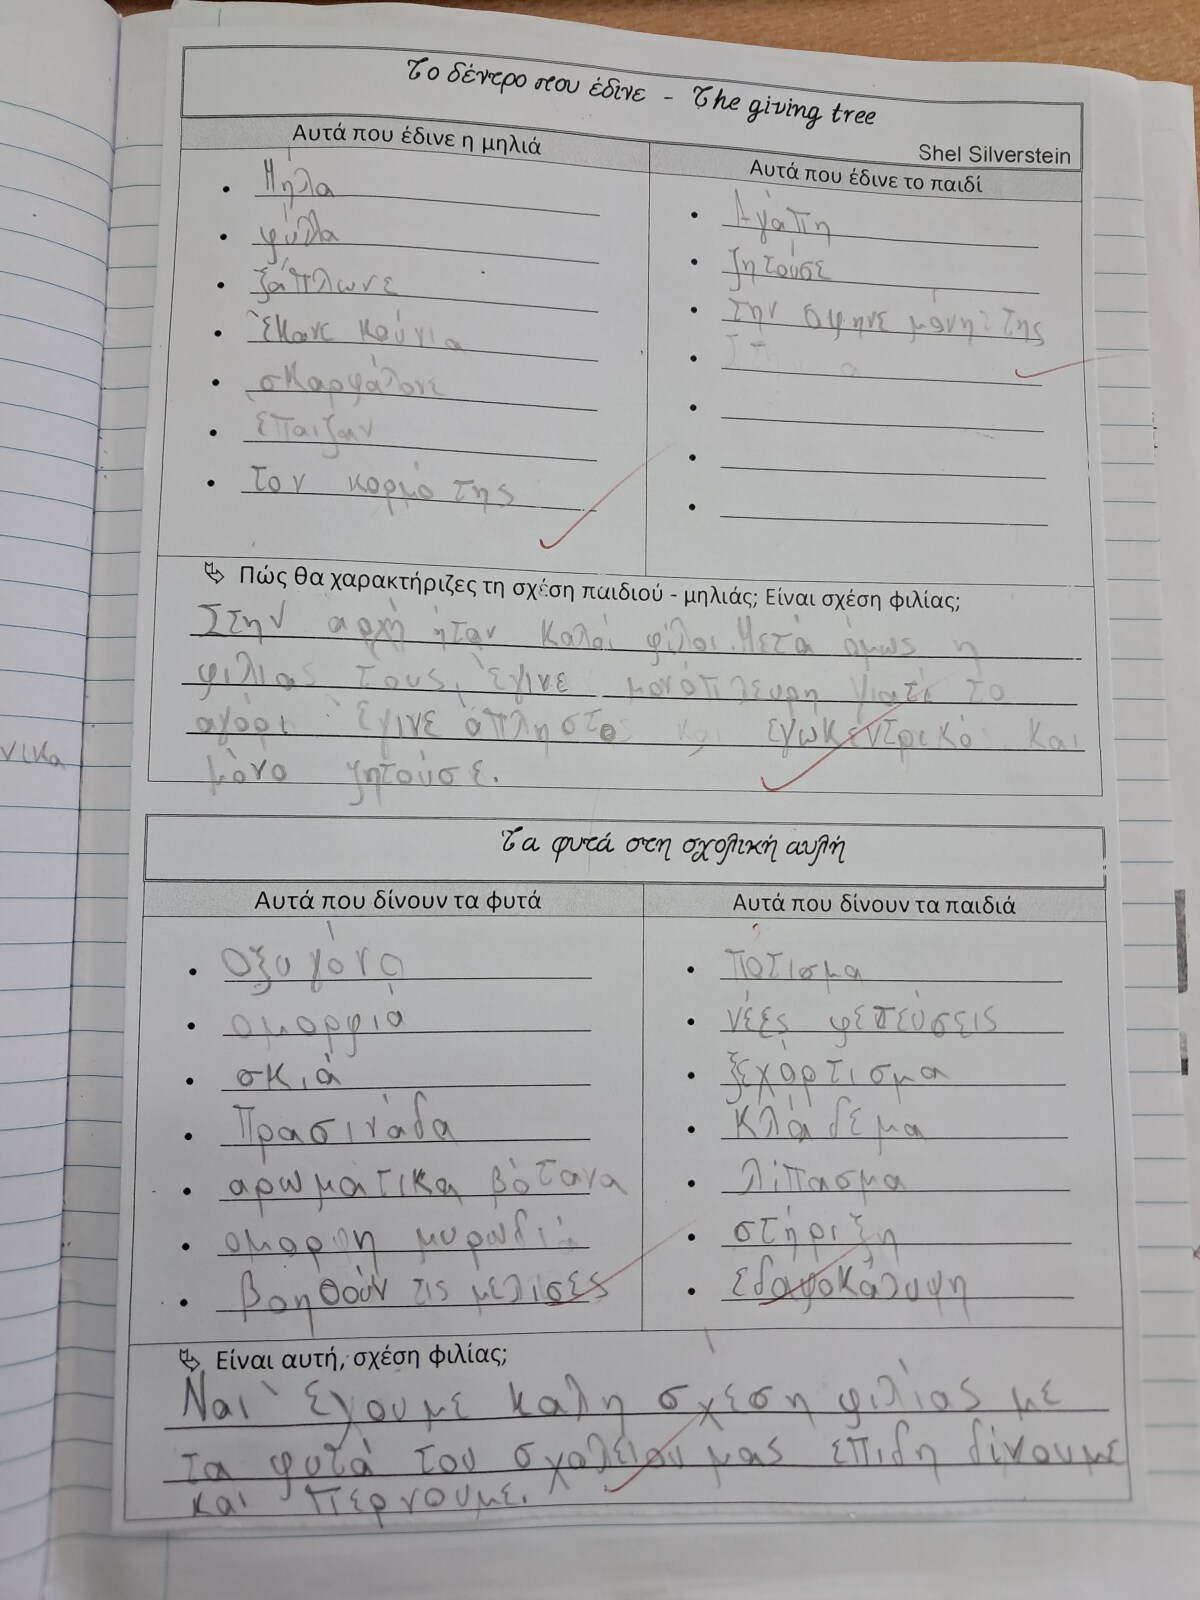 Το δέντρο που έδινε - The giving tree
Shel Silverstein
Αυτά που έδινε η μηλιά
Μήλα
φύλλα
ξάπλωνε
Έκανε κούνια
σκαρφάλονε
Έπαιζαν
τον κορμό της
Αυτά που έδινε το παιδί
Αγάπη
ζητούσε
την αφηνε μόνη της
Πώς θα χαρακτήριζες τη σχέση παιδιού - μηλιάς; Είναι σχέση φιλίας;
Στην αρχή ήταν καλοί φίλοι. Μετά όμως η
φιλιας τους, έγινε μονόπλευρη γιατί το
αγόρι έγινε άπληστο και εγωκεντρικό και
μόνο ζητούσε.
νικα
Τα φυτά στη σχολική αυλή
Αυτά που δίνουν τα φυτά
Οξυγόνο
ομορφιά
σκιά
Πρασινάδα
αρωματικα βότανα
ομορφη μυρωδιά
βοηθούν τις μελισες
Αυτά που δίνουν τα παιδιά
πότισμα
νέες φετεύσεις
ξεχόρτισμα
κλάδεμα
λίπασμα
στήριξη
εδαφοκάλυψη
Είναι αυτή, σχέση φιλίας;
Ναι έχουμε καλη σχέση φιλίας με
τα φυτά του σχολείου μας επιδη δίνουμε
και περνουμε.